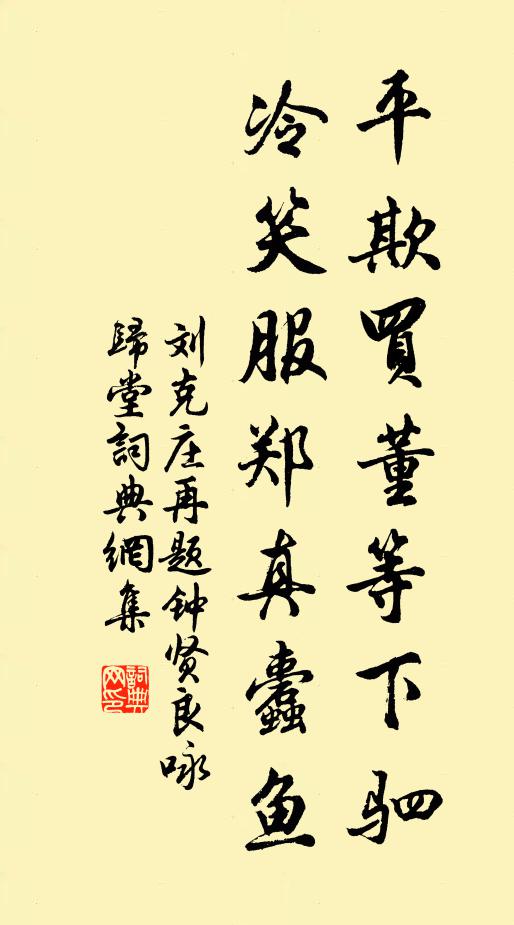 平欺買董等下驷
冷笑服郑真蠹鱼
刘克庄再题钟贤良咏
歸堂詞典網集
詞典网印